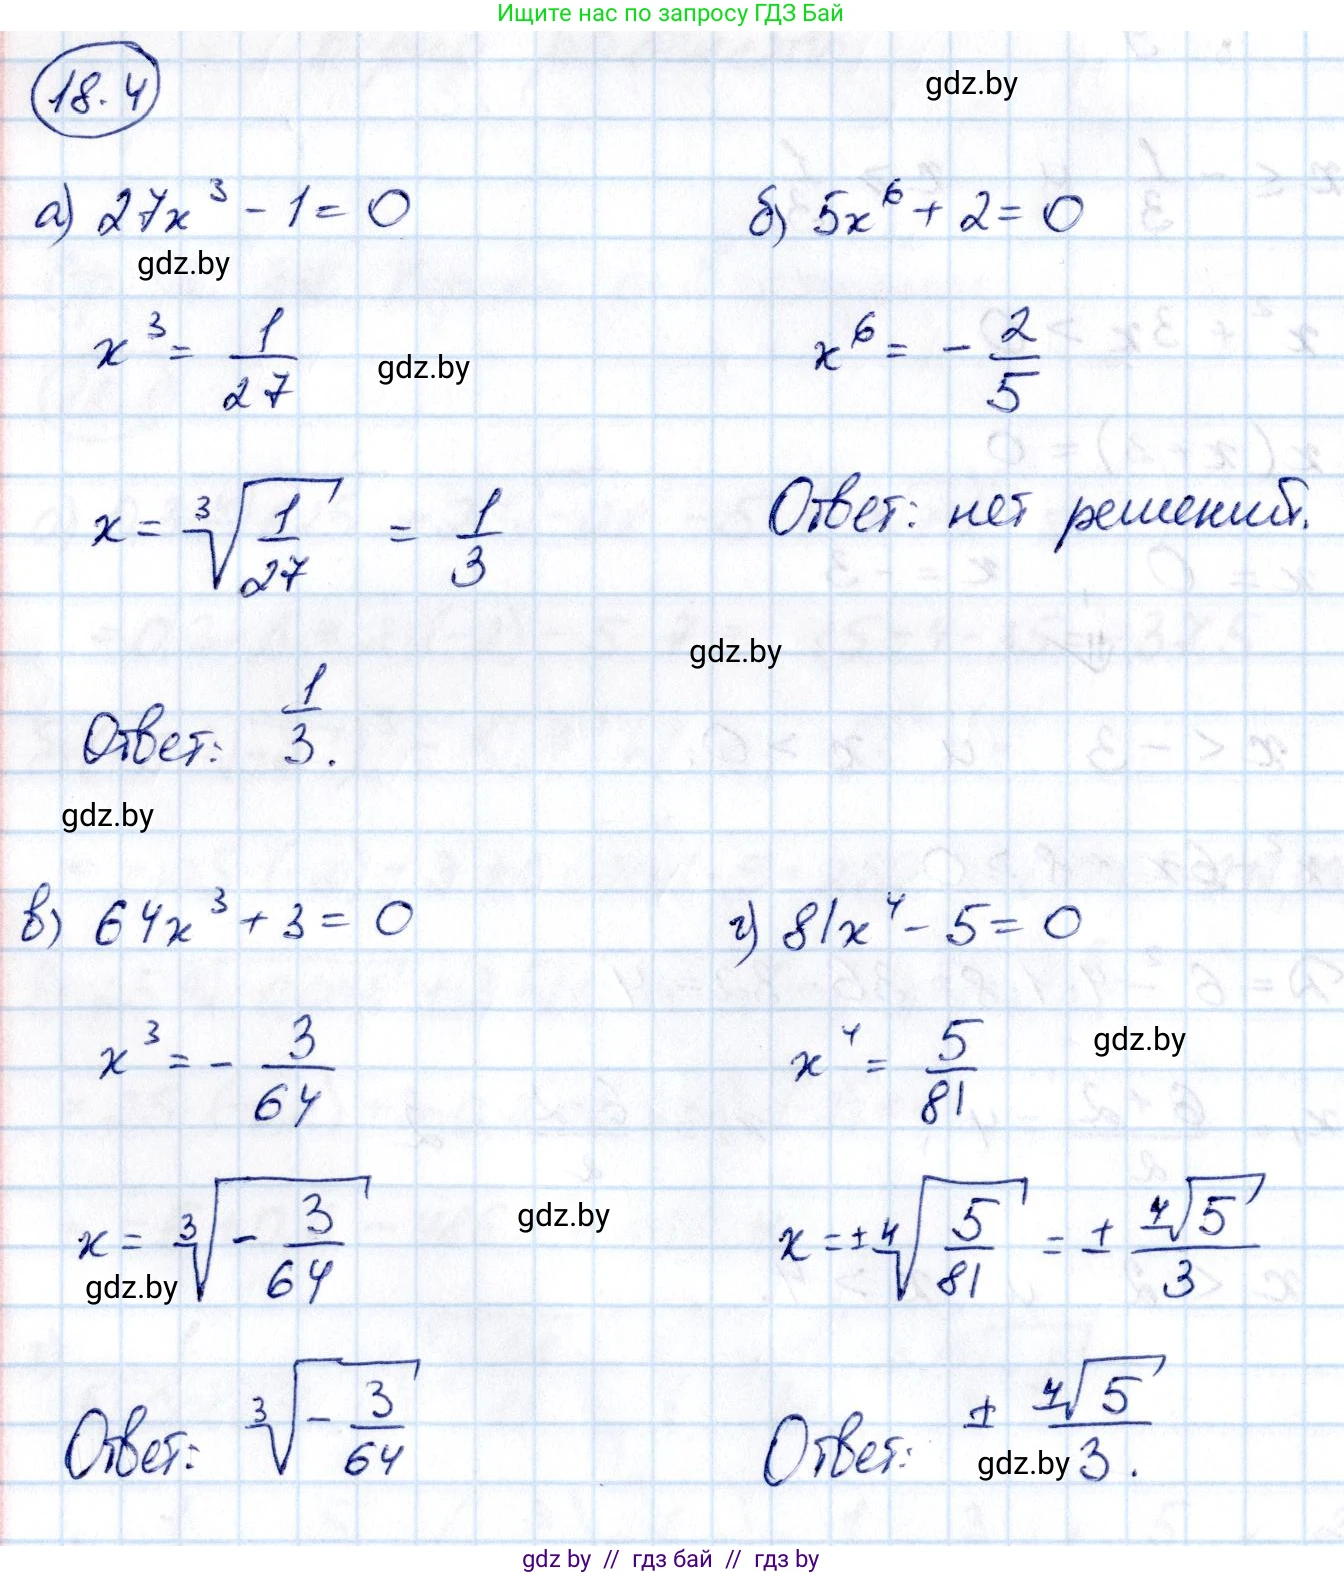 Ищите нас по запросу ГДЗ Бай
18.4
gdz.by
а) 27x³ - 1 = 0
gdz.by
x³ = 1/27
gdz.by
x = ∛(1/27) = 1/3
Ответ: 1/3.
gdz.by
б) 5x⁶ + 2 = 0
x⁶ = - 2/5
Ответ: нет решений.
gdz.by
в) 64x³ + 3 = 0
x³ = - 3/64
x = ∛(- 3/64)
gdz.by
gdz.by
Ответ: ∛(- 3/64)
г) 81x⁴ - 5 = 0
x⁴ = 5/81
gdz.by
x = ± ∜(5/81) = ± ∜5/3
Ответ: ± ∜5/3.
gdz.by
gdz by // гдз бай // гдз by